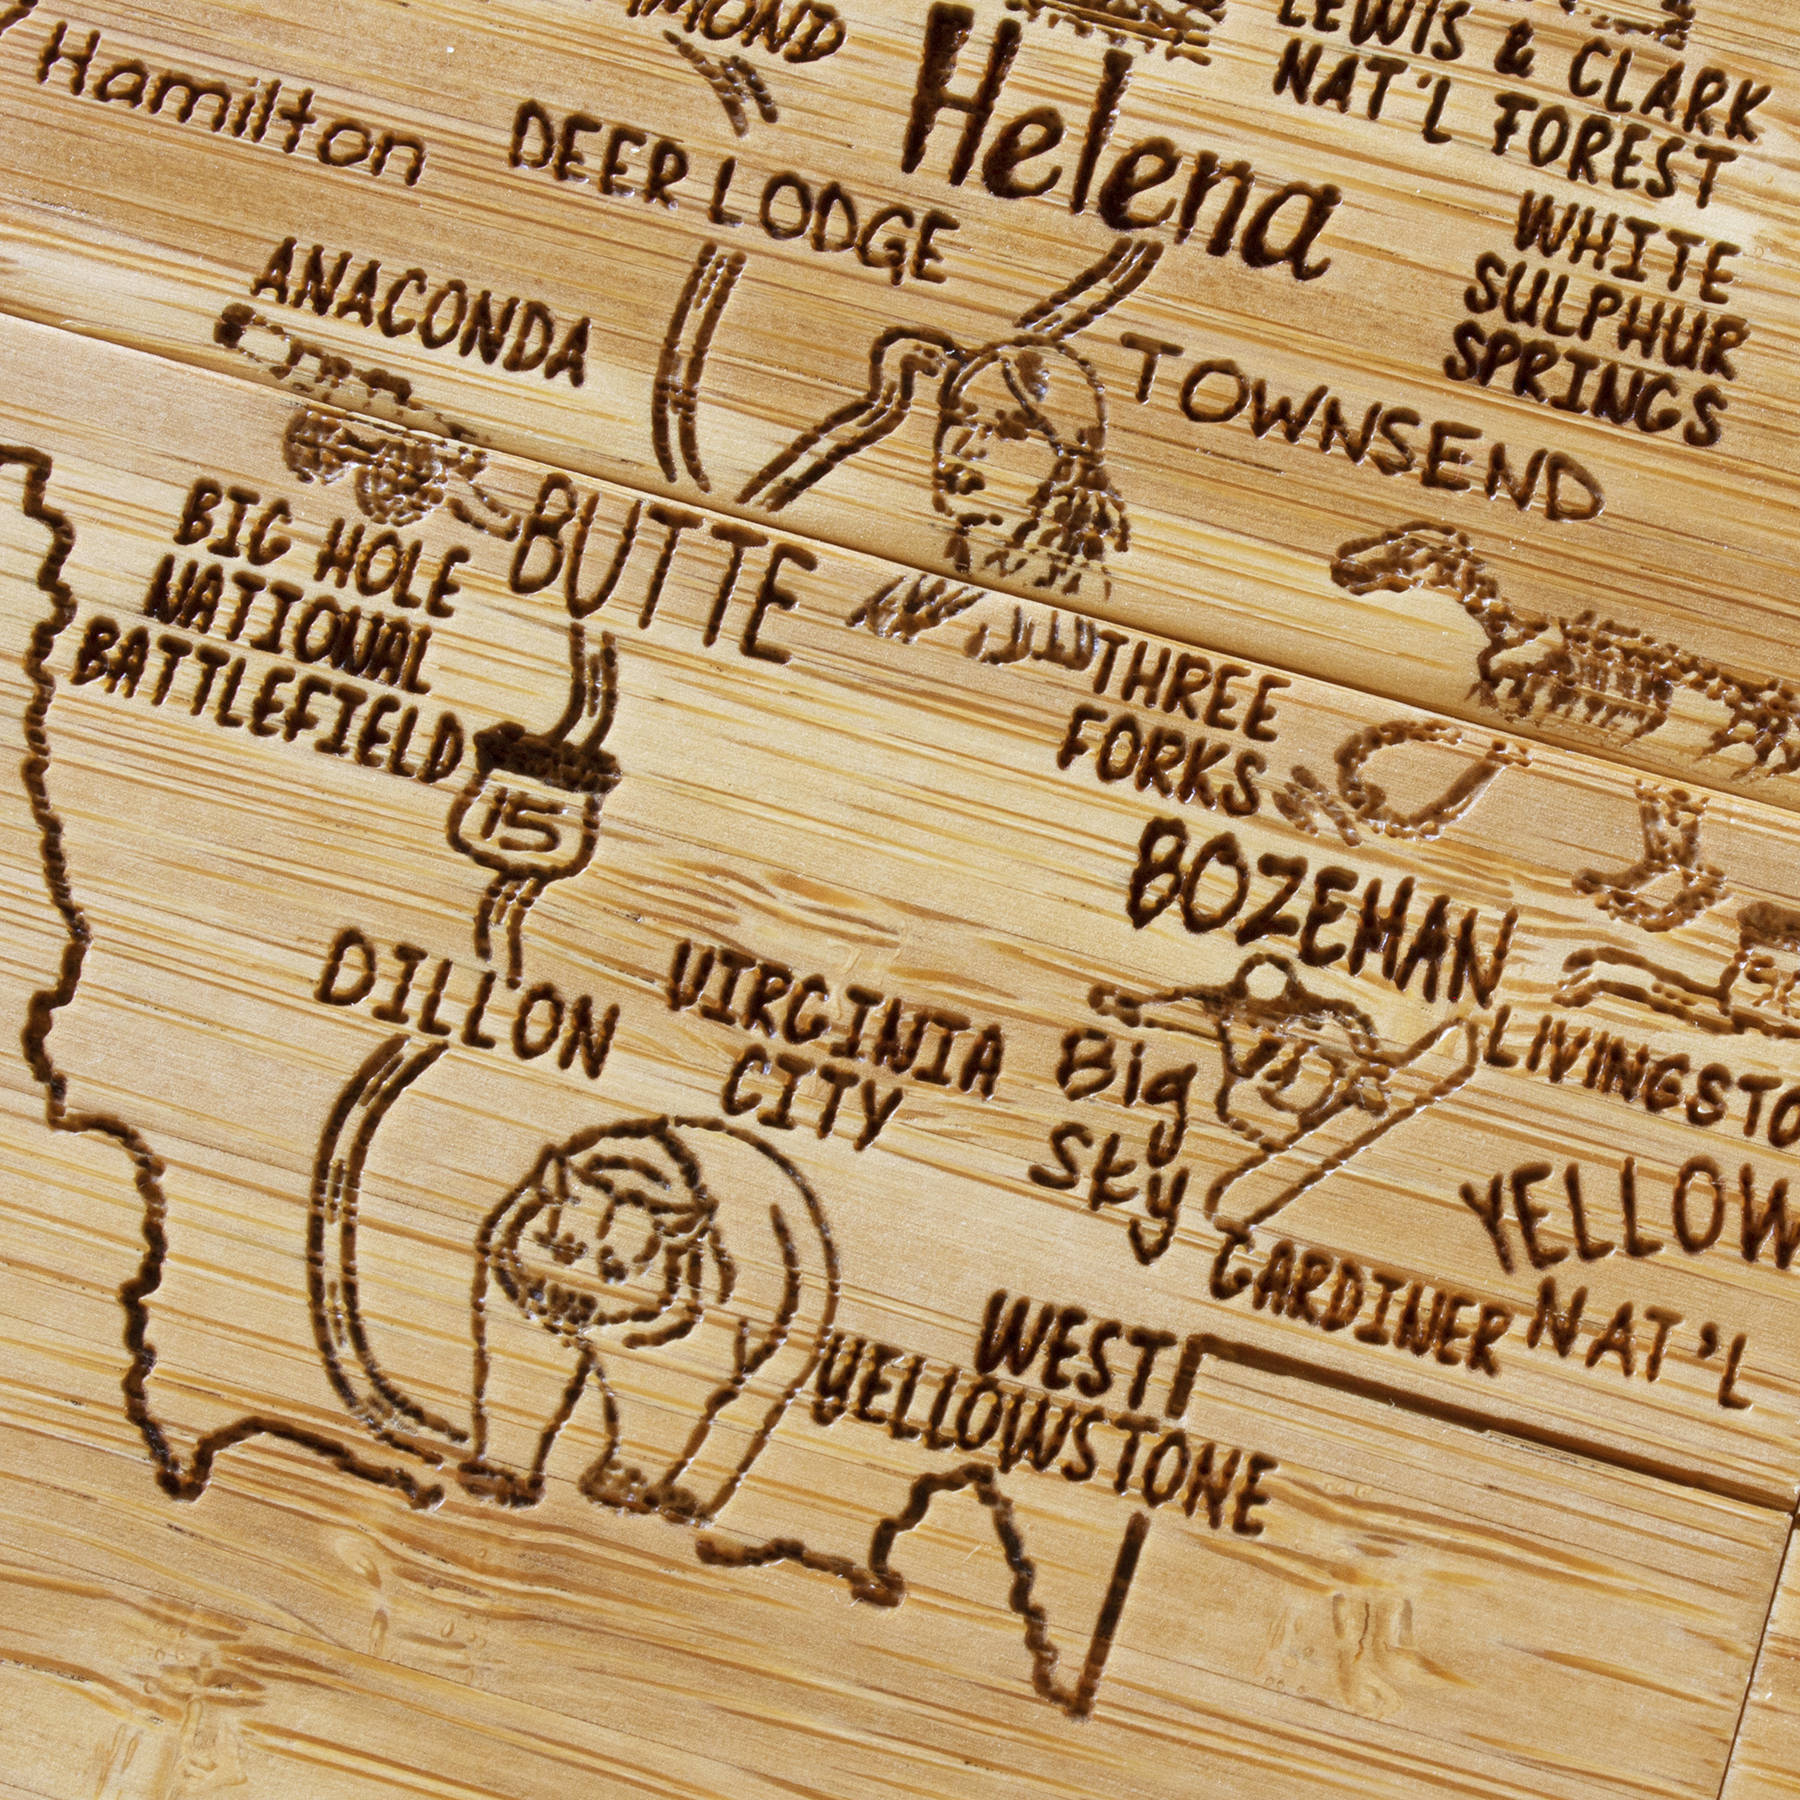 MOND
LEWIS & CLARK
NAT'L FOREST
Hamilton
DEER LODGE
Helena
WHITE
SULPHUR
SPRINGS
ANACONDA
TOWNSEND
BIG HOLE
NATIONAL
BATTLEFIELD
BUTTE
THREE
FORKS
15
BOZEMAN
DILLON
VIRGINIA
CITY
Big
Sky
LIVINGSTO
YELLOW
NAT'L
GARDINER
WEST
YELLOWSTONE